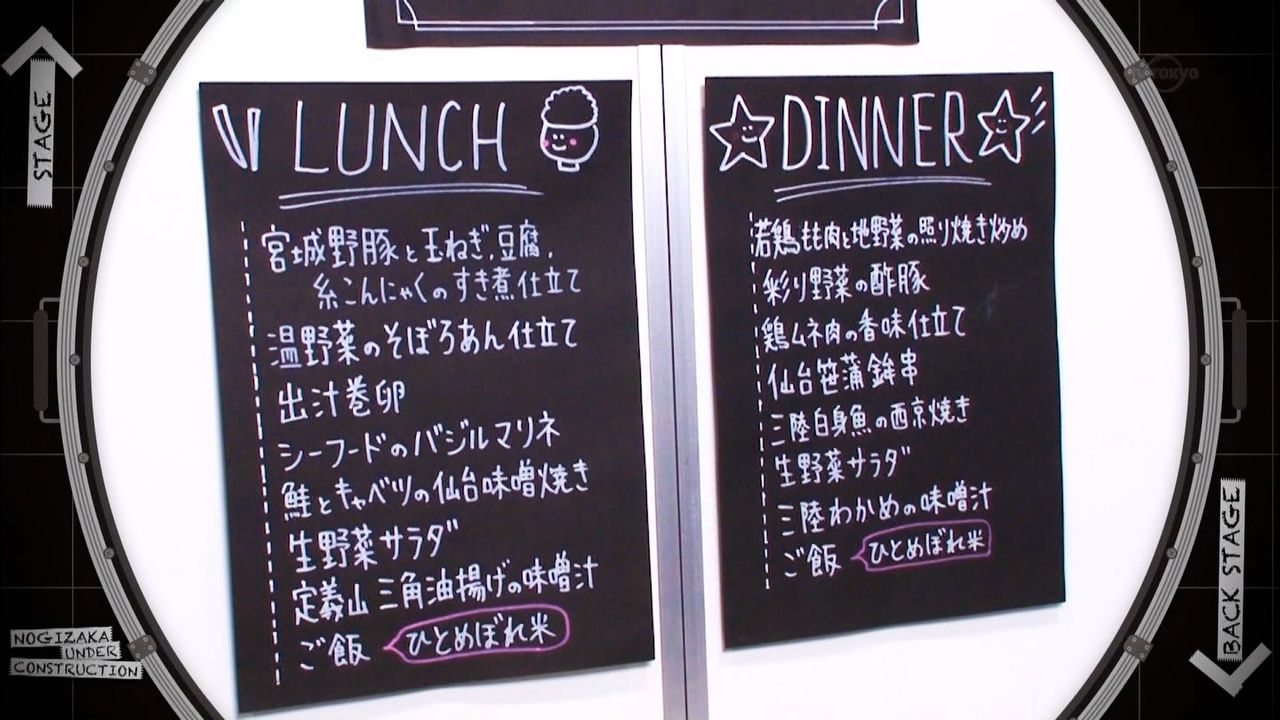 STAGE
TOKYO
LUNCH
宮城野豚と玉ねぎ、豆腐、
糸こんにゃくのすき煮仕立て
温野菜のそぼろあん仕立て
出汁巻卵
シーフードのバジルマリネ
鮭とキャベツの仙台味噌焼き
生野菜サラダ
定義山 三角油揚げの味噌汁
ご飯 ひとめぼれ米
DINNER
若鶏もも肉と地野菜の照り焼き炒め
彩り野菜の酢豚
鶏ムネ肉の香味仕立て
仙台笹蒲鉾串
三陸白身魚の西京焼き
生野菜サラダ
三陸わかめの味噌汁
ご飯 ひとめぼれ米
NOGIZAKA
UNDER
CONSTRUCTION
BACK STAGE